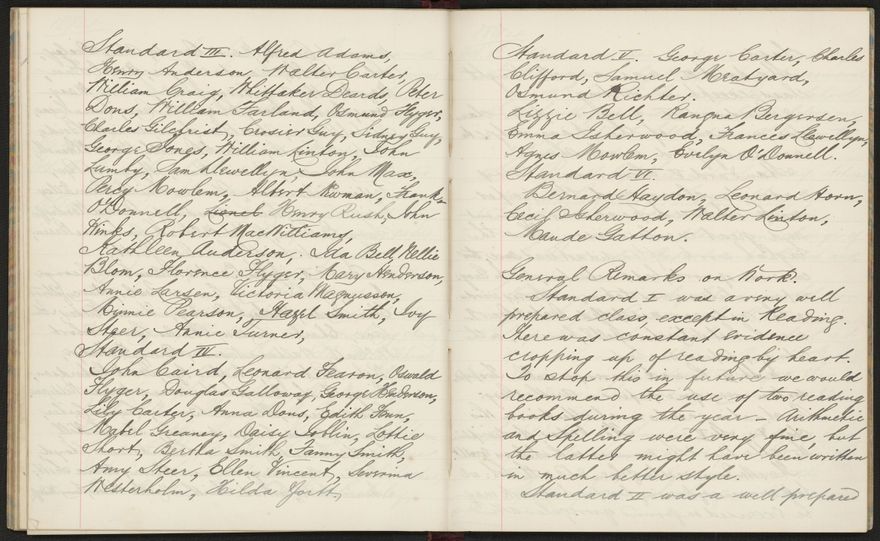 Standard III. Alfred Adams,
Henry Anderson, Walter Carter,
William Craig, Whittaker Deards, Peter
Dons, William Farland, Osmund Flyger,
Charles Gilchrist, Crosier Guy, Sidney Guy,
George Jones, William Linton, John
Lumby, Llewellyn, John Max,
Percy Mowlem, Albert Newman, Frank
O'Donnell, Lionel Henry Rush, John
Winks, Robert MacWilliams,
Kathleen Anderson, Ida Bell, Nellie
Blom, Florence Flyger, Mary Henderson,
Annie Larsen, Victoria Magnusson,
Minnie Pearson, Hazel Smith, Ivy
Steer, Annie Turner,
Standard IV.
John Caird, Leonard Fearon, Oswald
Flyger, Douglas Galloway, George Henderson,
Lily Carter, Anna Dons, Edith
Mabel Greaney, Daisy Joblin, Lottie
Short, Bertha Smith, Fanny Smith,
Amy Steer, Ellen Vincent, Severina
Westerholm, Hilda
Standard V. George Carter, Charles
Clifford, Samuel Meatyard,
Osmund Richter.
Lizzie Bell, Rangna Bergersen,
Emma Isherwood, Frances Llewellyn,
Agnes Mowlem, Evelyn O'Donnell.
Standard VI.
Bernard Haydon, Leonard Horn,
Cecil Isherwood, Walter Linton,
Maude Gatton.
General Remarks on Work.
Standard I was a very well
prepared class except in Reading.
There was constant evidence
cropping up of reading by heart.
To stop this in future we would
recommend the use of two reading
books during the year - Arithmetic
and Spelling were very fine, but
the latter might have been written
in much better style.
Standard II was a well prepared